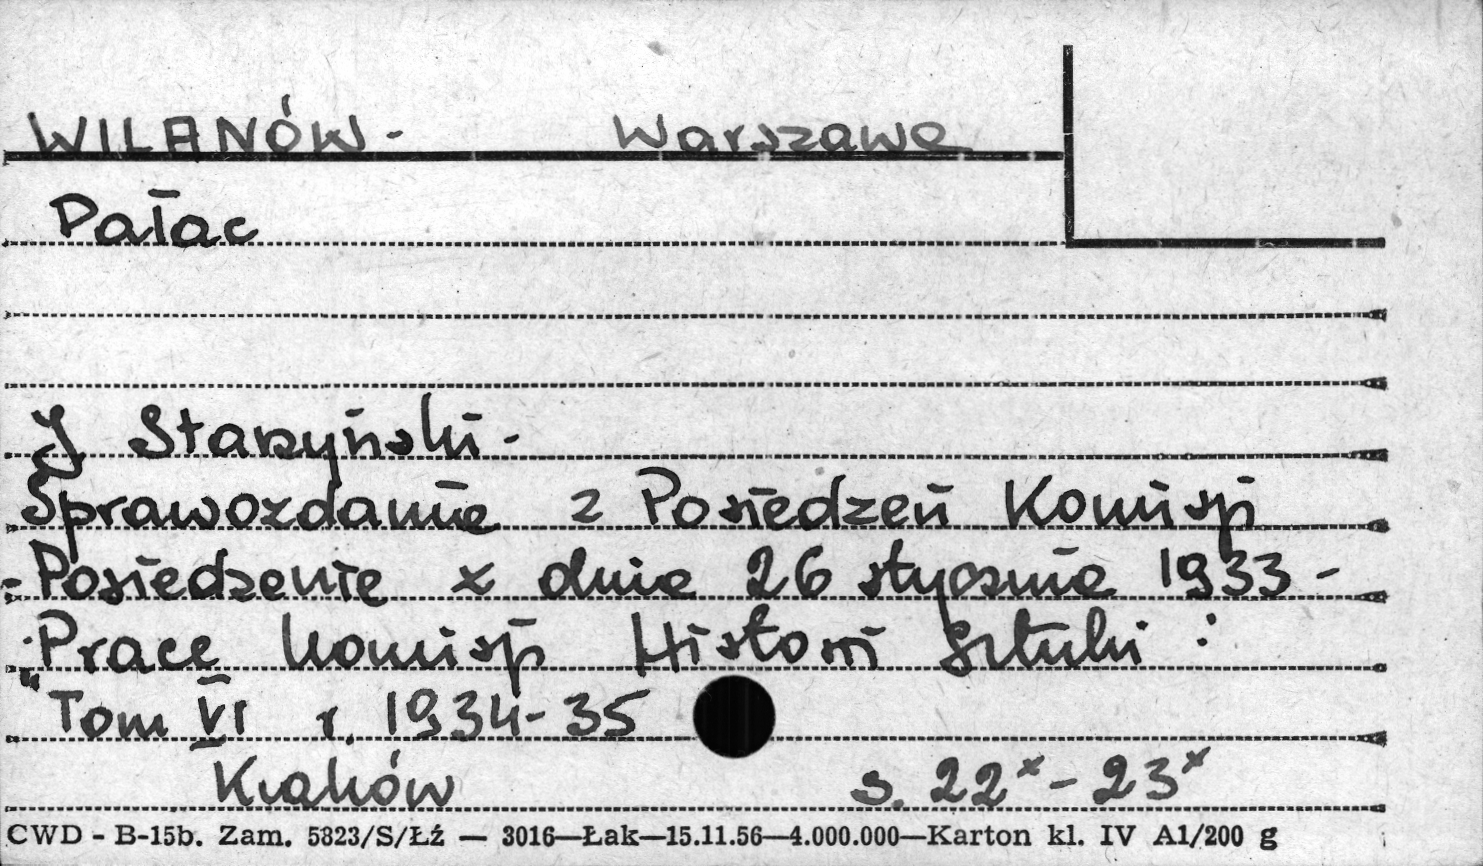 WILANÓW - Warszawa
Pałac
J Starzyński -
Sprawozdanie z Posiedzeń Komisji
- Posiedzenie z dnia 26 stycznia 1933 -
"Prace Komisji Historii Sztuki"
Tom VI r. 1934-35
Kraków s. 22ˣ - 23ˣ
CWD - B-15b. Zam. 5823/S/Łź — 3016—Łak—15.11.56—4.000.000—Karton kl. IV A1/200 g